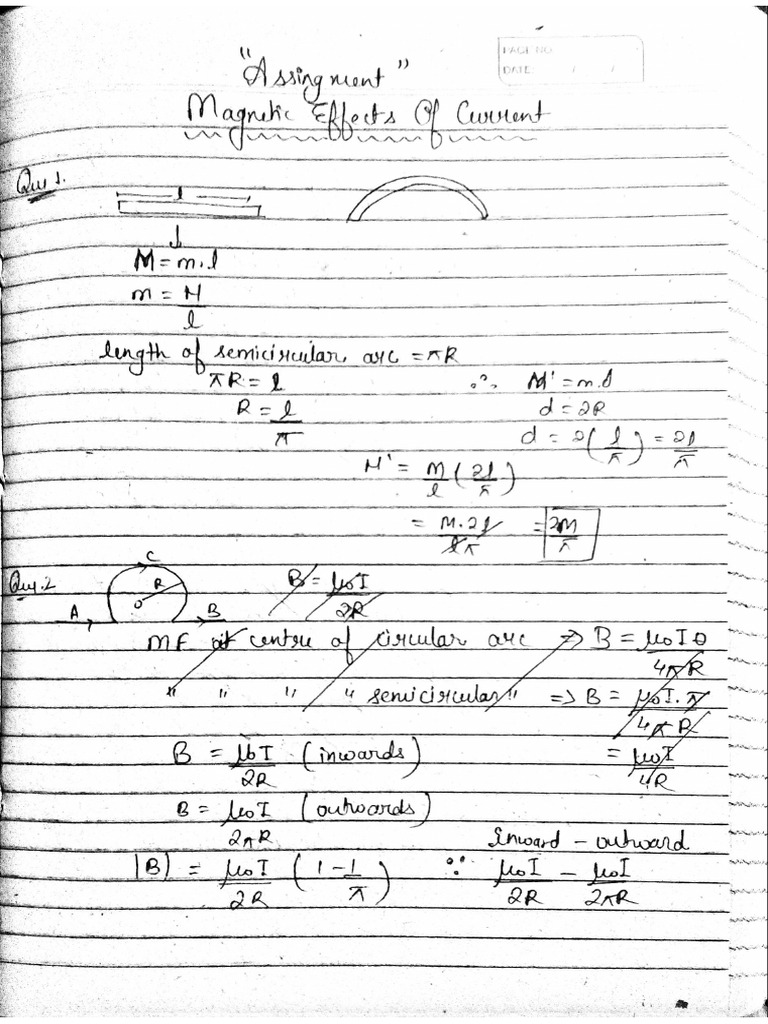 PAGE NO.
DATE: / /
"Assingment"
Magnetic Effects Of Current
Que 1.
l
M = m.l
m = M/l
length of semicircular arc = πR
πR = l ∴ M' = m.d
R = l/π d = 2R
d = 2(l/π) = 2l/π
M' = M/l (2l/π)
= M.2l/lπ = 2M/π
Que.2 A C R O B B = μ₀I/2R
MF at centre of circular arc => B = μ₀Iθ/4πR
" " " " semicircular " => B = μ₀I.π/4πR
B = μ₀I/2R (inwards) = μ₀I/4R
B = μ₀I/2πR (outwards)
Inward - outward
|B| = μ₀I/2R (1 - 1/π) ∵ μ₀I/2R - μ₀I/2πR